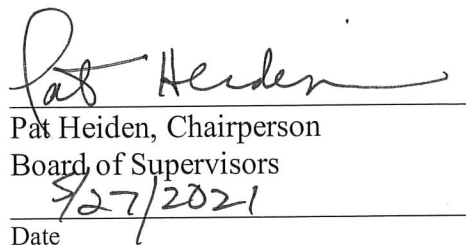 Pat Heiden
Pat Heiden, Chairperson
Board of Supervisors
5/27/2021
Date